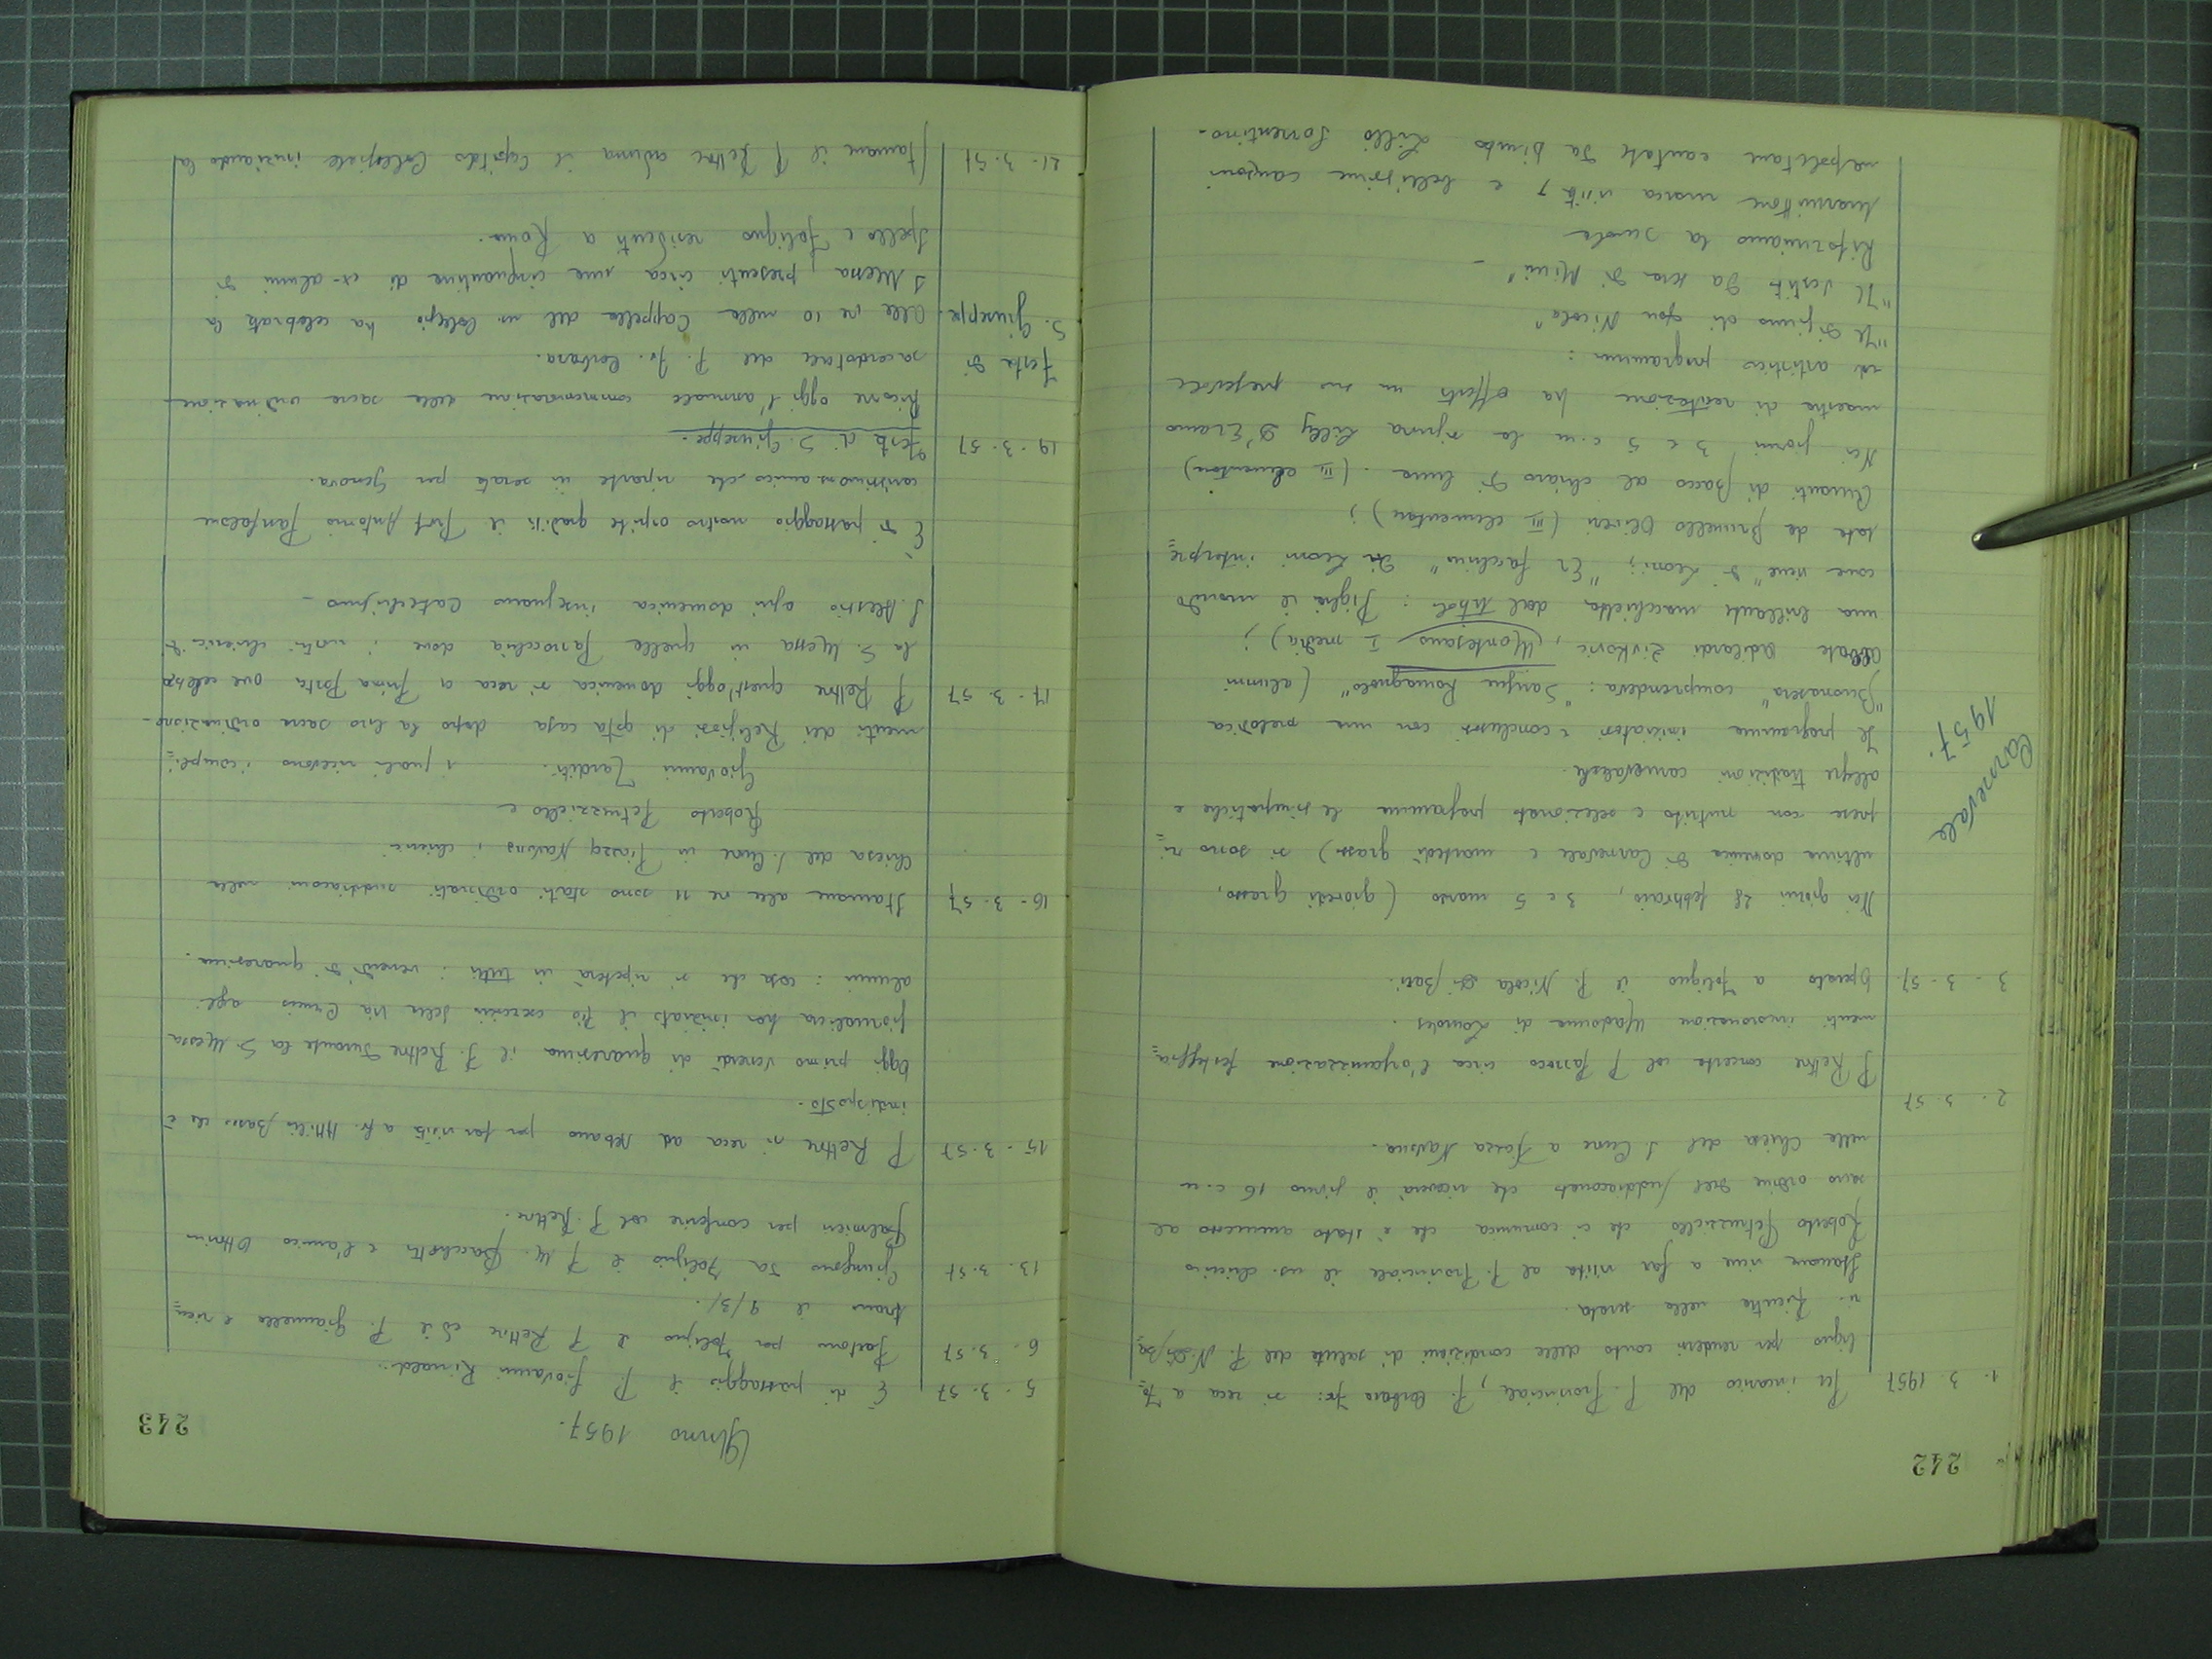 242
1. 3. 1957 Per incarico del P. Provinciale, P. Corbara Fr: si reca a Fo=
ligno per rendersi conto delle condizioni di salute del P. N. Di Ba=
ri. Rientra nella serata.
Stamane viene a far visita al P. Provinciale il ns. chierico
Roberto Petruzziello che ci comunica che è stato ammesso al
sacro ordine del suddiaconato che riceverà il giorno 16 c. m
nella Chiesa del S. Cuore a Piazza Navona.
2. 3. 57
P. Rettore concerta col P. Parroco circa l'organizzazione festeggia=
menti incoronazione Madonna di Lourdes.
3 - 3 - 57. Operato a Foligno il P. Nicola Di Bari.
Carnevale
1957.
Nei giorni 28 febbraio, 3 e 5 marzo (giovedì grasso,
ultima domenica di Carnevale e martedì grasso) si sono ri=
prese con nutrito e selezionato programma le simpatiche e
allegre tradizioni carnevalesche.
Il programma iniziatosi e conclusosi con una melodica
"Buonasera" comprendeva: "Sangue Romagnolo" (alunni
Abbate Adilardi Zivkovic, Montesano I media);
una brillante macchietta dal titolo: Piglia il mondo
come viene" di Leoni; "Er facchino" di Leoni interpre=
tate da Brunello Oliveri (III elementare);
Avanti di Bacco al chiaro di luna. (III elementare)
Nei giorni 3 e 5 c. m la signora Lilly D'Eramo
maestra di recitazione ha offerto un suo pregevole
ed artistico programma:
"Il Digiuno di Don Nicola"
"Il vestito da sera di Mimì" -
Riformiamo la scuola
Marmittone marca visita, e bellissime canzoni
napoletane cantate da bimbo Lillo Sorrentino.
243
Anno 1957.
5 - 3. 57 È di passaggio il P. Giovanni Rinaldi.
6 - 3. 57 Partono per Foligno il P. Rettore ed il P. Giannella e rien=
trano il 9/3/.
13. 3. 57 Giungono da Foligno il P. M. Bacchetti e l'amico Ottorino
Palmieri per conferire col P. Rettore.
15 - 3. 57 P. Rettore si reca ad Albano per far visita a fr. Attilio Basso che è
indisposto.
Oggi primo venerdì di quaresima il P. Rettore durante la S. Messa
giornaliera ha iniziato il Pio esercizio della Via Crucis agli
alunni: cosa che si ripeterà in tutti i venerdì di quaresima.
16 - 3. 57 Stamane alle re 11 sono stati ordinati suddiaconi nella
Chiesa del S. Cuore in Piazza Navona i chierici
Roberto Petruzziello e
Giovanni Zarditi. i quali ricevono i compli=
menti dei Religiosi di qsta casa dopo la loro sacra ordinazione.
17 - 3. 57 P. Rettore quest'oggi domenica si reca a Prima Porta ove celebra
la S. Messa in quella Parrocchia dove i nostri chierici di
S. Alessio ogni domenica insegnano Catechismo -
È di passaggio nostro ospite gradito il Prof. Antonio Panfalone
carissimo ns amico che riparte in serata per Genova.
19 - 3. 57 Festa di S. Giuseppe.
Ricorre oggi l'annuale commemorazione della sacra ordinazione
Festa di
S. Giuseppe.
sacerdotale del P. Fr. Corbara.
Alle re 10 nella Cappella del ns. Collegio ha celebrato la
S Messa presenti circa una cinquantina di ex-alunni di
Spello e Foligno residenti a Roma.
21. 3. 57 Stamane il P Rettore aduna il Capitolo Collegiale iniziando la